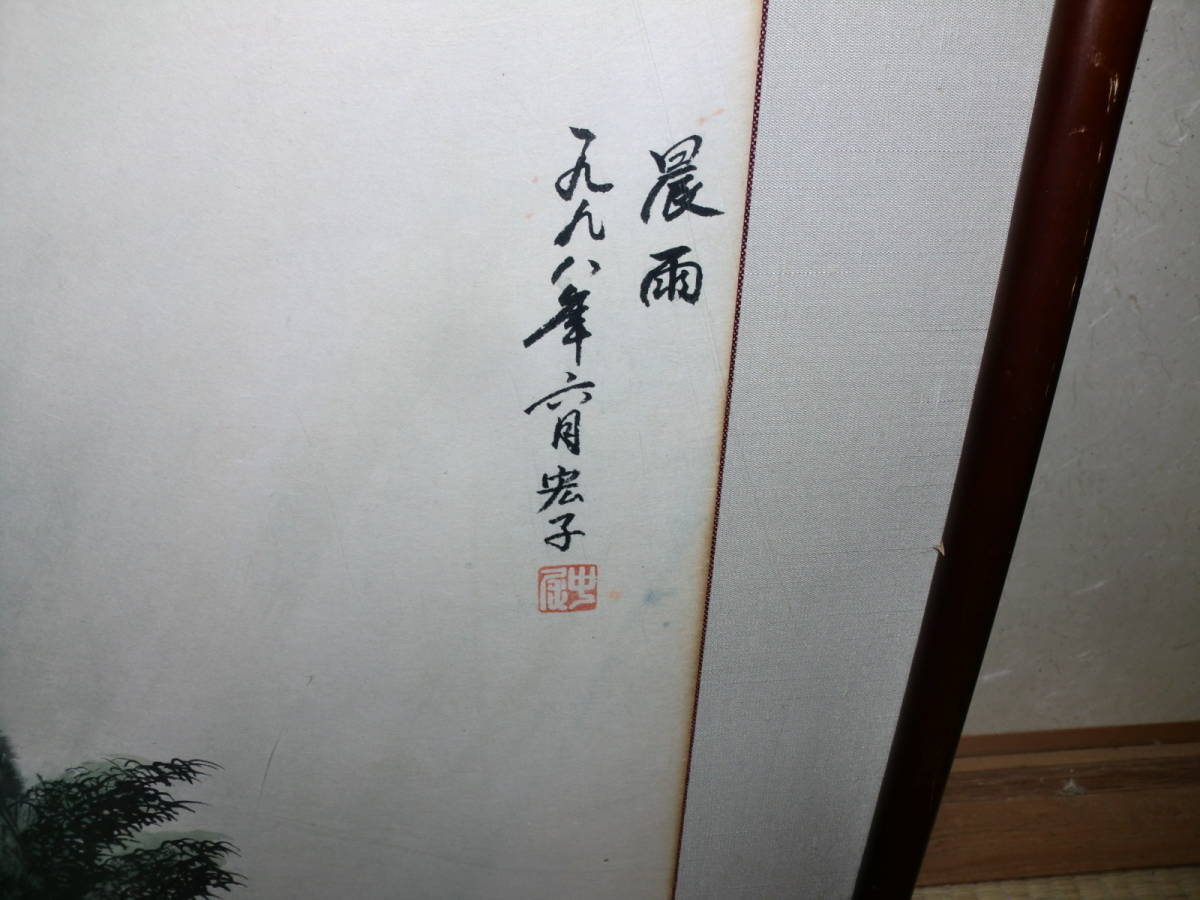 晨雨
一九九八年六月宏子